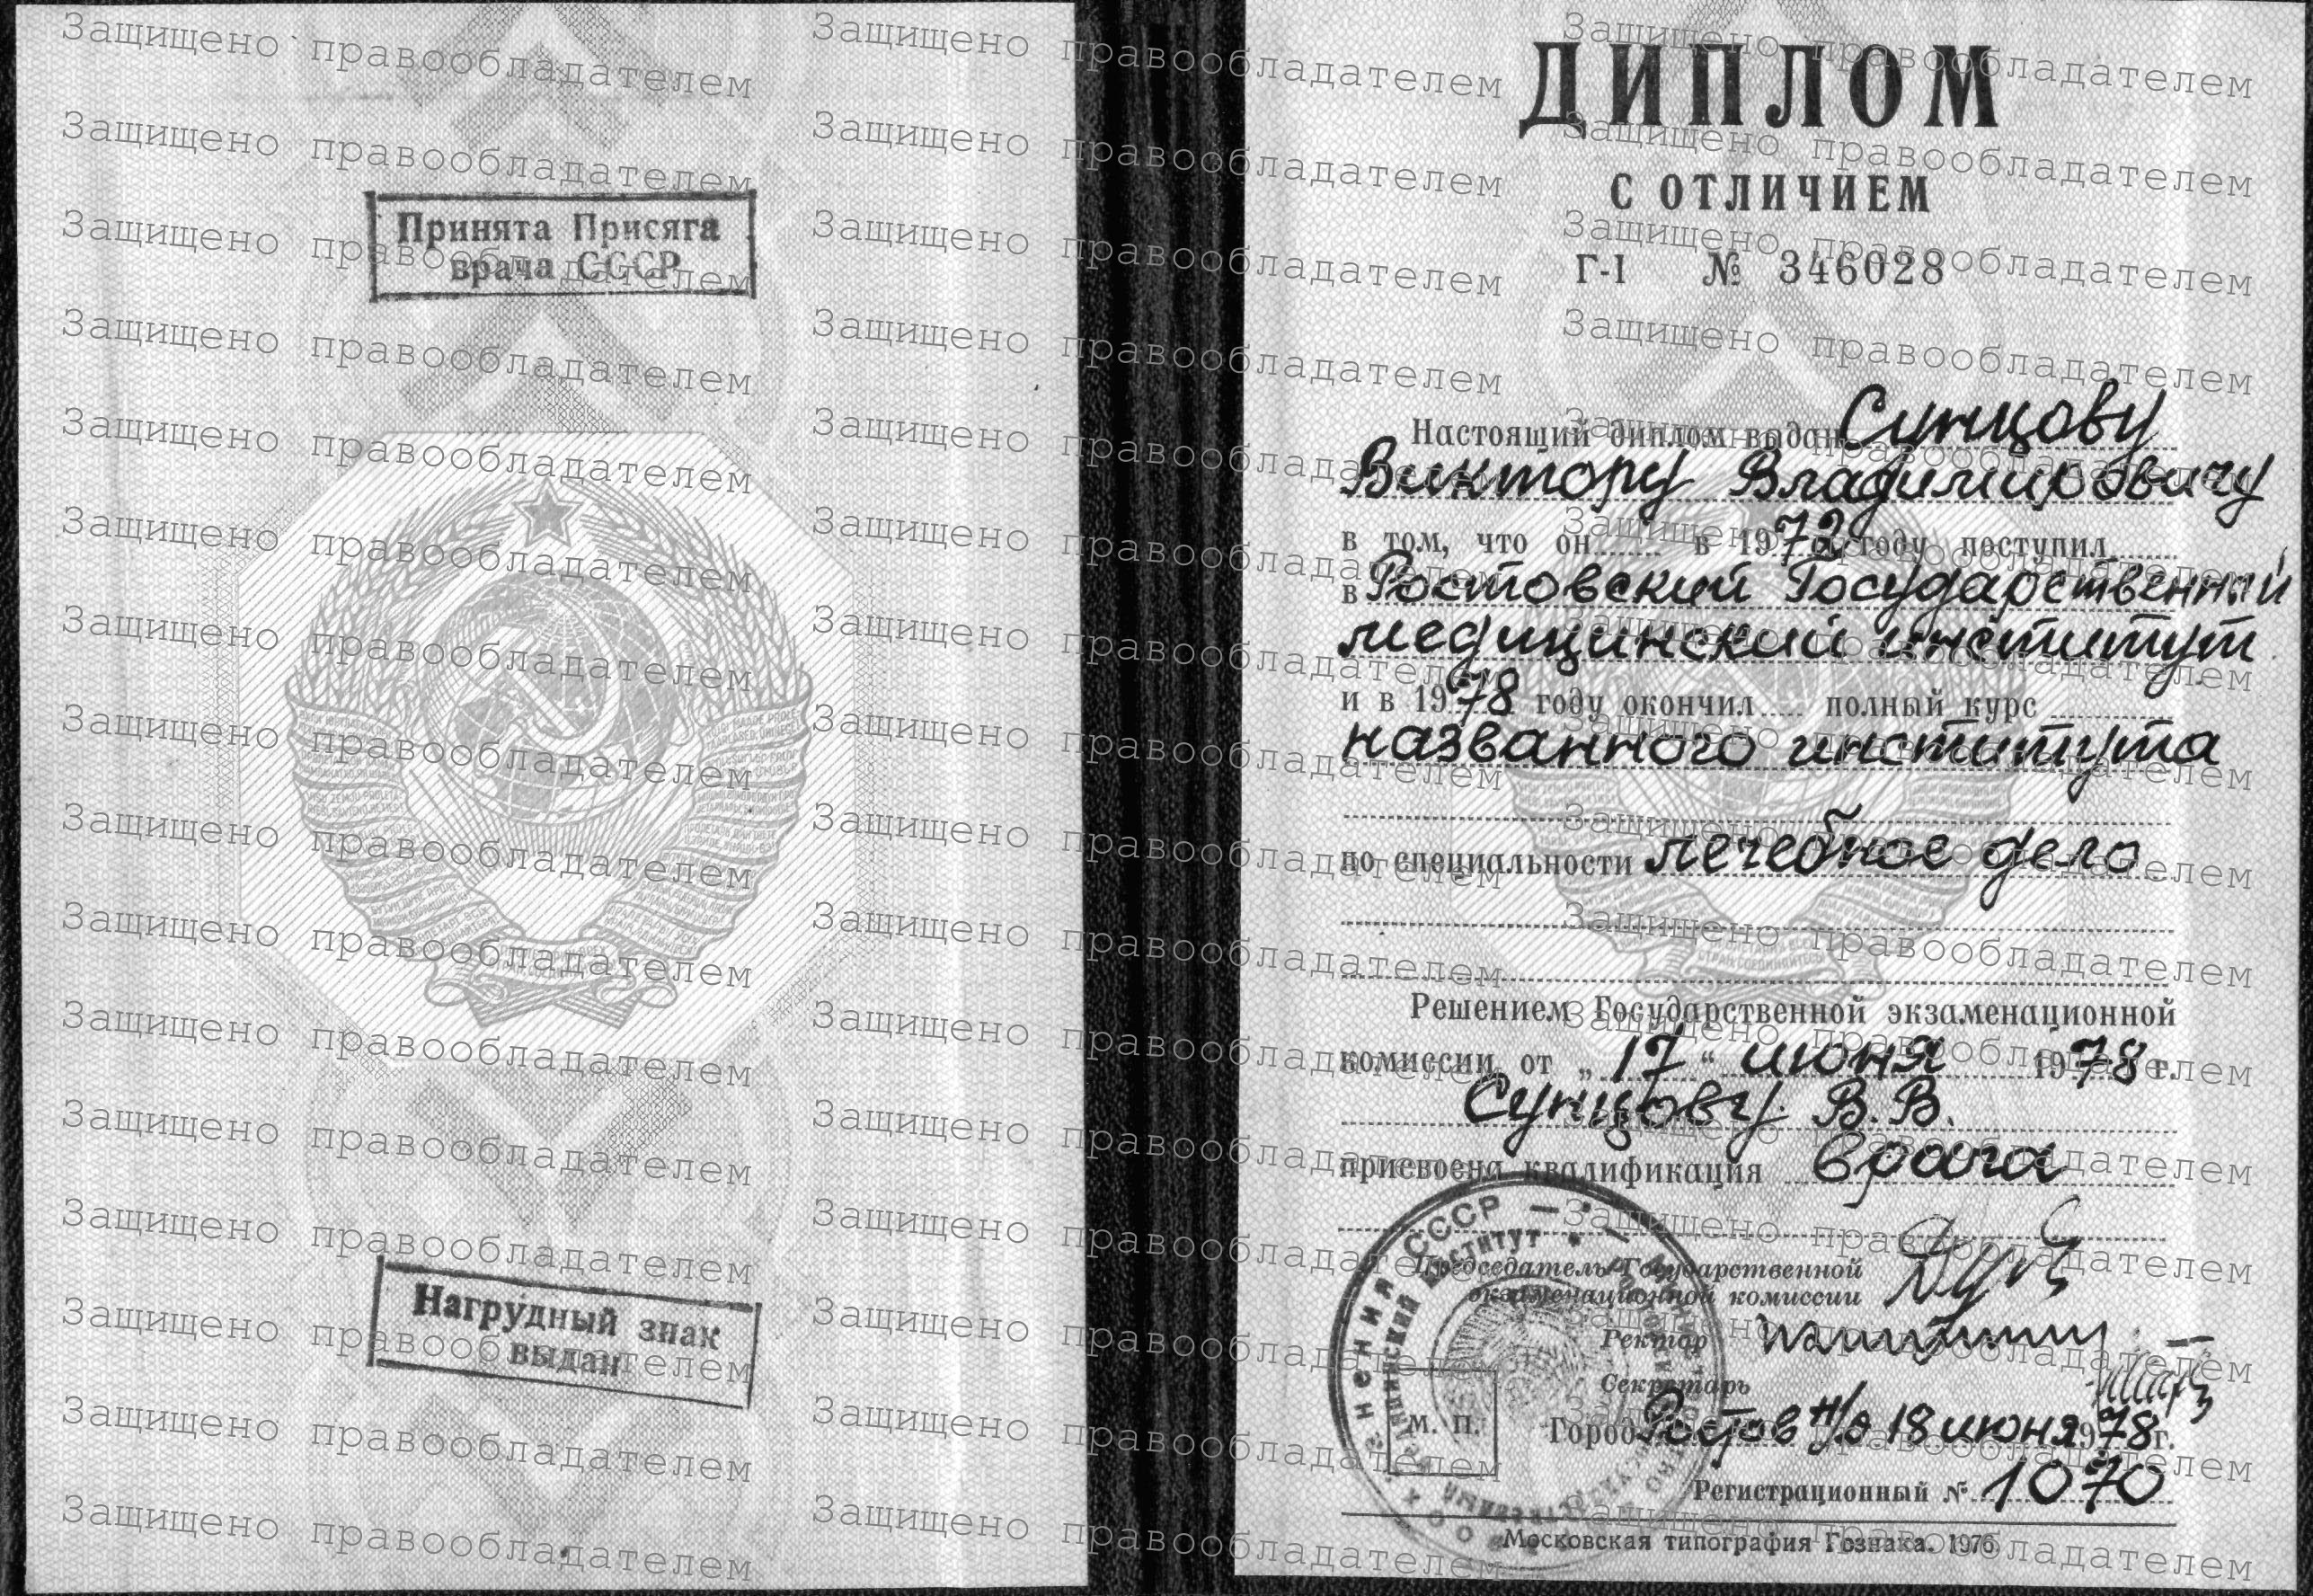 Принята Присяга
врача СССР
Нагрудный знак
выдан
ДИПЛОМ
С ОТЛИЧИЕМ
Г-I № 346028
Настоящий диплом выдан Сунцову
Виктору Владимировичу
в том, что он в 1972 году поступил
в Ростовский Государственный
медицинский институт
и в 1978 году окончил полный курс
названного института
по специальности лечебное дело
Решением Государственной экзаменационной
комиссии от „17“ июня 1978 г.
Сунцову В.В.
присвоена квалификация врача
Председатель Государственной
экзаменационной комиссии
Ректор
Секретарь
М. П.
Город Ростов н/Д 18 июня 1978 г.
Регистрационный № 1070
Московская типография Гознака. 1976
Защищено правообладателем